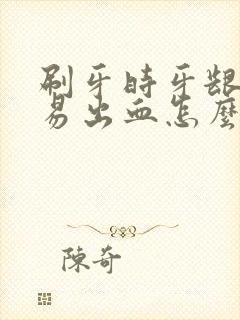 刷牙時牙龈
易出血怎麼
陳奇